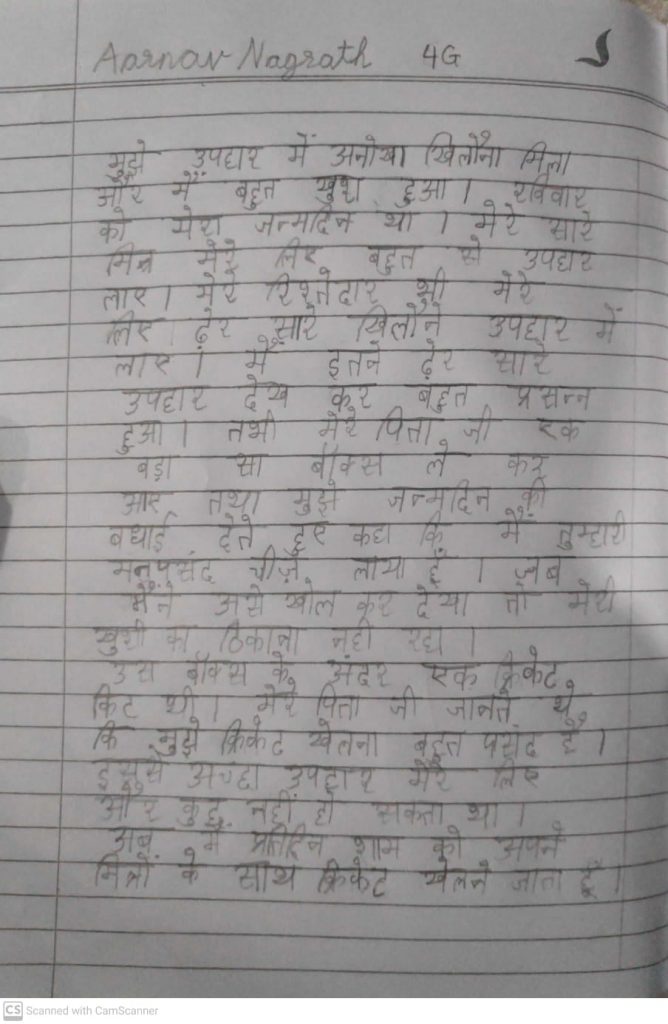 Aarnav Nagrath 4G
मुझे उपहार में अनोखा खिलौना मिला
और मैं बहुत खुश हुआ। रविवार
को मेरा जन्मदिन था। मेरे सारे
मित्र मेरे लिए बहुत से उपहार
लाए। मेरे रिश्तेदार भी मेरे
लिए ढ़ेर सारे खिलौने उपहार में
लाए। मैं इतने ढ़ेर सारे
उपहार देख कर बहुत प्रसन्न
हुआ। तभी मेरे पिता जी एक
बड़ा सा बॉक्स ले कर
आए तथा मुझे जन्मदिन की
बधाई देते हुए कहा कि मैं तुम्हारी
मनपसंद चीज़ें लाया हूँ। जब
मैंने उसे खोल कर देखा तो मेरी
खुशी का ठिकाना नही रहा।
उस बॉक्स के अंदर एक क्रिकेट
किट थी। मेरे पिता जी जानते थे
कि मुझे क्रिकेट खेलना बहुत पसंद है।
इससे अच्छा उपहार मेरे लिए
और कुछ नहीं हो सकता था।
अब मैं प्रतिदिन शाम को अपने
मित्रों के साथ क्रिकेट खेलने जाता हूँ।
CS Scanned with CamScanner